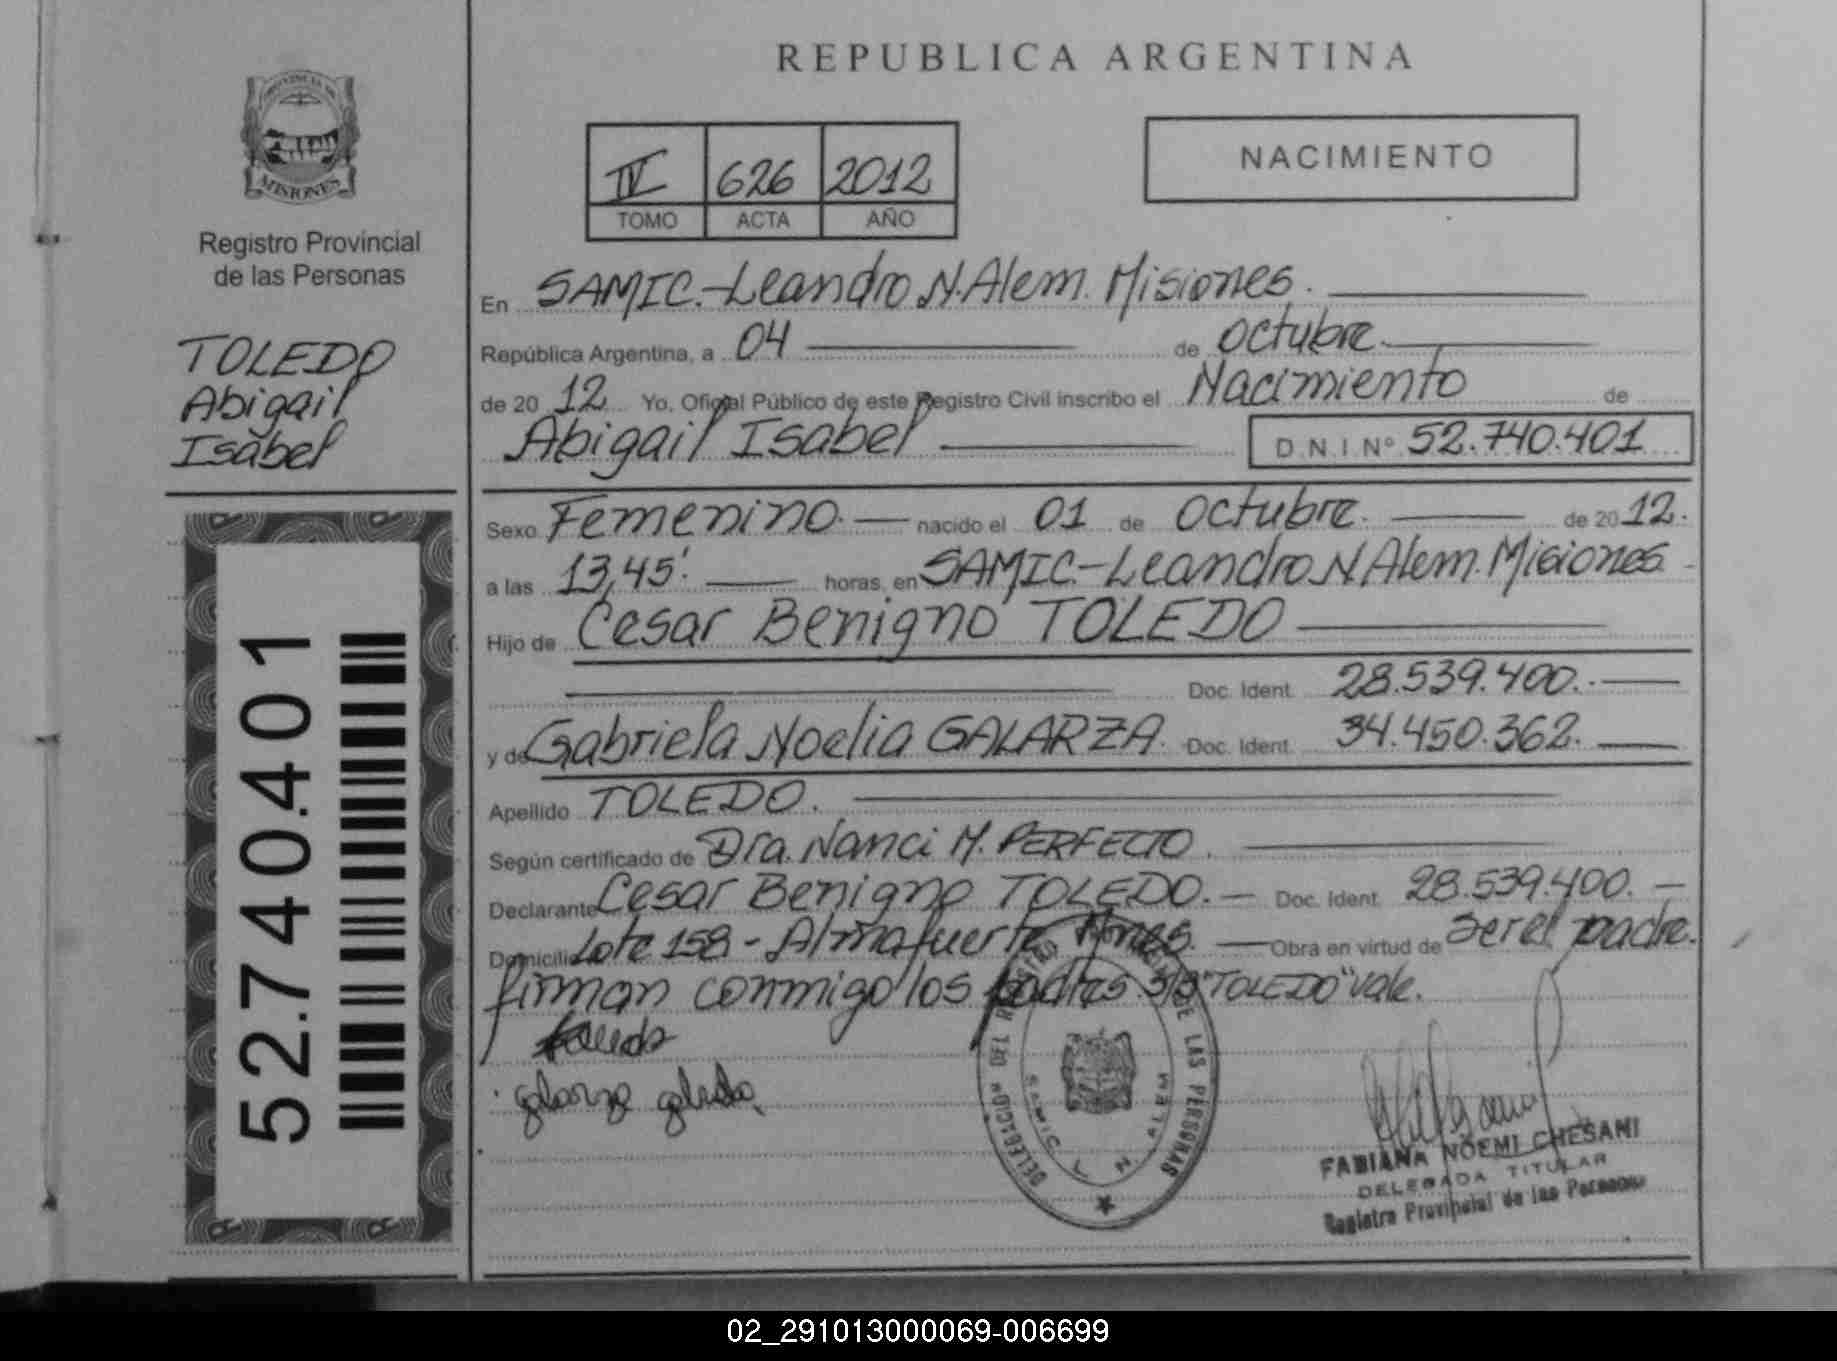 REPUBLICA ARGENTINA
PROVINCIA DE
MISIONES
Registro Provincial
de las Personas
TOLEDO
Abigail
Isabel
52.740.401
IV 626 2012
TOMO ACTA AÑO
NACIMIENTO
En SAMIC.-Leandro N. Alem. Misiones.
República Argentina, a 04 de octubre.
de 20 12 Yo, Oficial Público de este Registro Civil inscribo el Nacimiento de
Abigail Isabel D.N.I.Nº 52.740.401
Sexo Femenino.- nacido el 01 de octubre. de 20 12.
a las 13,45'. horas, en SAMIC.-Leandro N. Alem. Misiones.
Hijo de Cesar Benigno TOLEDO
Doc. Ident. 28.539.400.-
y de Gabriela Noelia GALARZA. Doc. Ident. 34.450.362.
Apellido TOLEDO.
Según certificado de Dra. Nanci M. PERFECTO.
Declarante Cesar Benigno TOLEDO.- Doc. Ident. 28.539.400.-
Domicilio Lote 158 - Almafuerte Mnes. Obra en virtud de ser el padre.
firman conmigo los padres. S/B "TOLEDO" Vale.
toledo
galarza
DELEGACION DEL REGISTRO DE LAS PERSONAS
SAMIC L. N. ALEM
FABIANA NOEMI CHESANI
DELEGADA TITULAR
Registro Provincial de las Personas
02_291013000069-006699